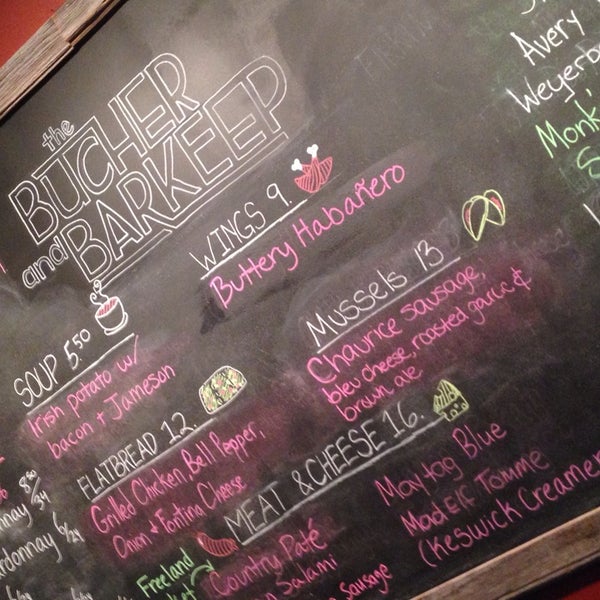 the
BUTCHER
and
BARKEEP
WINGS 9.
Buttery Habañero
Mussels 13
Chaurice sausage,
bleu cheese, roasted garlic &
brown ale
SOUP 5.50
Irish potato w/
bacon + Jameson
FLATBREAD 12.
Grilled Chicken, Bell Pepper,
Onion + Fontina Cheese
MEAT & CHEESE 16.
Country Paté
Salami
Sausage
Maytag Blue
Mad Elf Tomme
(Keswick Creamer
Freeland
Avery
Weyerb
Monk'
S
8.50/34
nnay 6/24
ardonnay